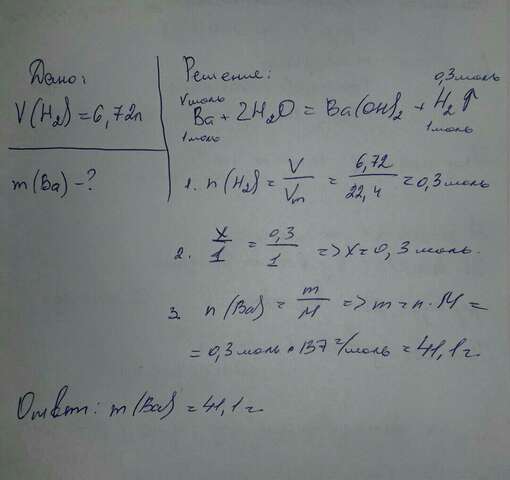 Дано:
V(H₂) = 6,72л
m(Ba) - ?
Решение:
0,3 моль
Ba + 2H₂O = Ba(OH)₂ + H₂↑
1моль 1моль
1. n(H₂) = V/Vm = 6,72/22,4 = 0,3 моль
2. x/1 = 0,3/1 => x = 0,3 моль.
3. n(Ba) = m/M => m = n · M =
= 0,3 моль · 137 г/моль = 41,1 г.
Ответ: m(Ba) = 41,1 г.